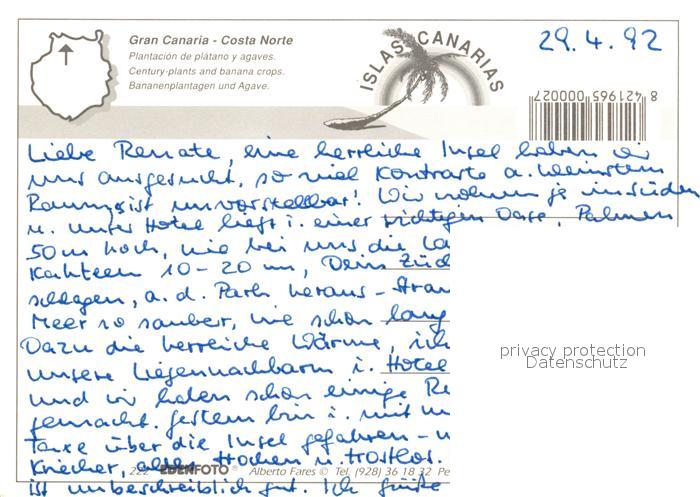 Gran Canaria - Costa Norte
Plantación de plátano y agaves.
Century-plants and banana crops.
Bananenplantagen und Agave.
ISLAS CANARIAS
29.4.92
8 421965 000027
Liebe Renate, eine herrliche Insel haben wir
uns ausgesucht, so viel Kontraste a. kleinstem
Raum ist unvorstellbar! Wir wohnen ja im Süden
u. unser Hotel liegt i. einer richtigen Oase, Palmen
50 m hoch, wie bei uns die
Kakteen 10-20 m, Dein
schlagen, a. d. Park heraus -
Meer so sauber, wie schon lang
Dazu die herrliche Wärme, ich
unsere Liegennachbarn i. Hotel
und wir haben schon einige
gemacht. Gestern bin i. mit
Taxe über die Insel gefahren -
Kriecher, alles trocken u. trostlos.
222 EDENFOTO Alberto Fares © Tel. (928) 36 18 32
ist unbeschreiblich gut. Ich grüße
privacy protection
Datenschutz